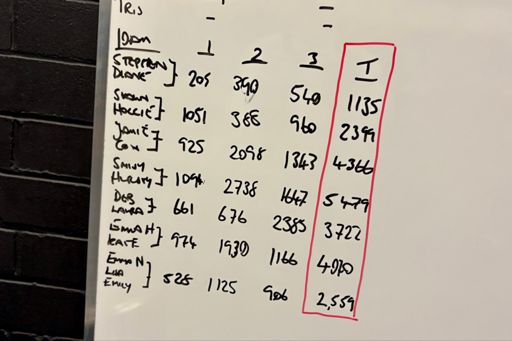 IRIS
TEAM 1 2 3 T
STEPHEN
DIANE } 205 390 540 1135
SHAWN
HOLLIE } 1051 388 960 2399
JAMIE
TOM } 925 2098 1343 4366
SANDY
1094 2738 1647 5479
DEB
LAURA } 661 676 2385 3722
EMMA H
KATE } 974 1930 1166
EMMA N
LOU
EMILY } 528 1125 906 2,559